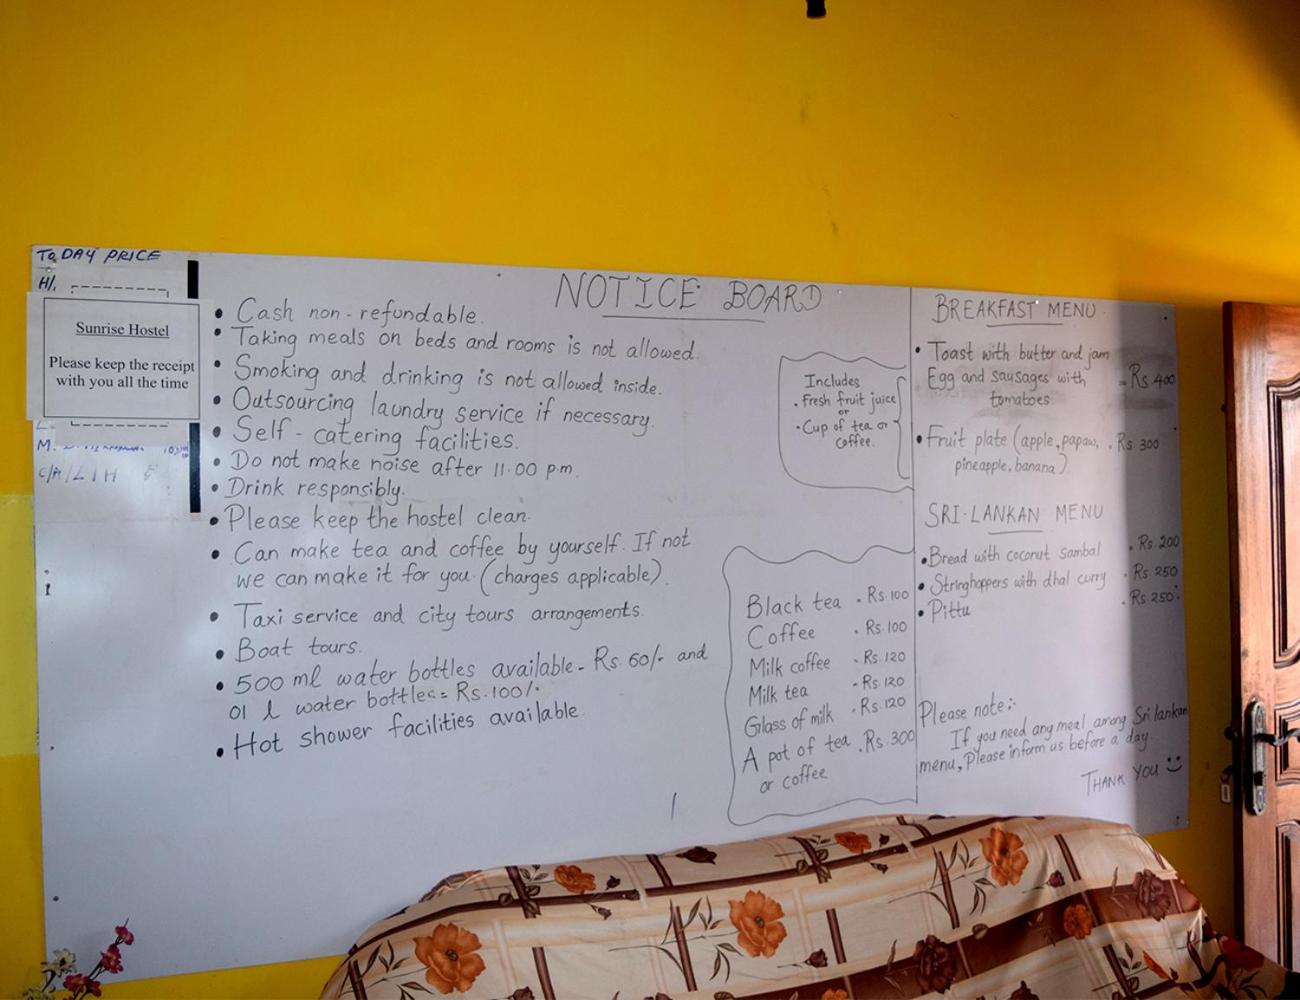 TODAY PRICE
H/.
Sunrise Hostel
Please keep the receipt
with you all the time
M.
NOTICE BOARD
• Cash non-refundable.
• Taking meals on beds and rooms is not allowed.
• Smoking and drinking is not allowed inside.
• Outsourcing laundry service if necessary.
• Self-catering facilities.
• Do not make noise after 11.00 p.m.
• Drink responsibly.
• Please keep the hostel clean.
• Can make tea and coffee by yourself. If not
we can make it for you. (charges applicable)
• Taxi service and city tours arrangements.
• Boat tours.
• 500 ml water bottles available - Rs. 60/- and
01 l water bottles = Rs. 100/.
• Hot shower facilities available.
Includes
• Fresh fruit juice
or
• Cup of tea or
coffee.
Black tea - Rs 100
Coffee - Rs. 100
Milk coffee - Rs. 120
Milk tea - Rs. 120
Glass of milk - Rs. 120
A pot of tea - Rs. 300
or coffee
BREAKFAST MENU
• Toast with butter and jam
Egg and sausages with = Rs. 400
tomatoes
• Fruit plate (apple, papaw, - Rs. 300
pineapple, banana)
SRI-LANKAN MENU
• Bread with coconut sambal - Rs. 200
• Stringhoppers with dhal curry - Rs. 250
• Pittu - Rs. 250
Please note:-
If you need any meal among Sri lankan
menu, Please inform us before a day.
THANK YOU